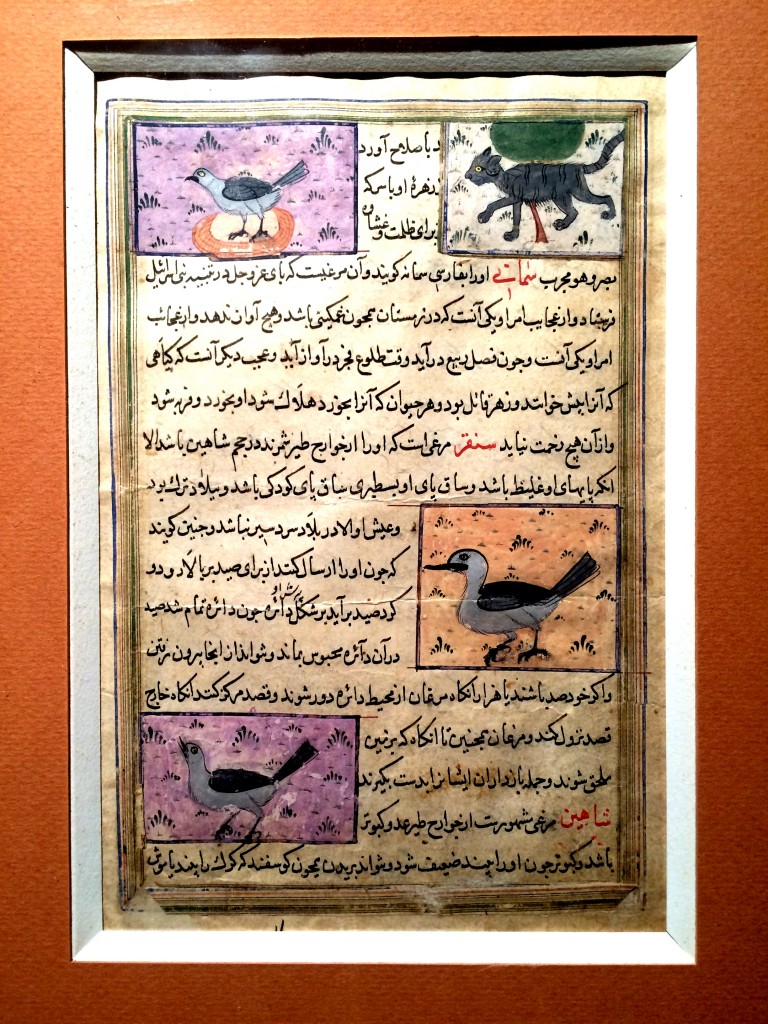 با صلاح آورد
زهرهٔ او با سرکه
برای ظلمت و غشاوهٔ
بصر و هو مجرب سمانی او را بفارسی سمانه کویند و آن مرغیست که خدای عز و جل در تیه بنی اسرائیل
فرستاد و از عجایب امر او یکی آنست که در زمستان همچون غمکینی باشد و هیچ آواز ندهد و از عجائب
امر او یکی آنست و چون فصل ربیع در آید وقت طلوع فجر در آواز آید و عجب دیکر آنست که کیاهی
که آنرا بیش خوانند و زهر قاتل بود و هر حیوان که آنرا بخورد هلاک شود او بخورد و فربه شود
و از آن هیچ زحمت نیابد سنقر مرغی است که او را از جوارح طیر شمرند در حجم شاهین باشد الا
انکه پایهای او غلیظ باشد و ساق پای او بسطبری ساق پای کودکی باشد و ببلاد ترک بود
و عیش او الا در بلاد سردسیر نباشد و چنین کویند
که چون او را ارسال کنند از برای صید بر بالا رود و
کرد صید بر آید بر شکل دائره چون دائره تمام شد صید
در آن دائره محبوس بماند و نتواند از انجا بیرون رفتن
و اکر خود صد باشند یا هزار آنکاه مرغان از محیط دائره دور شوند و قصد مرکز کنند آنکاه جارح
قصد نزول کند و مرغان همچنین تا آنکاه که بزمین
ملحق شوند و جمله بازداران ایشانرا بدست بکیرند
شاهین مرغی مشهورست از جوارح طیر عدو کبوتر
باشد و کبوتر چون او را بیند ضعیف شود و نتواند پریدن همچون کوسفند که کرک را بیند یا موش